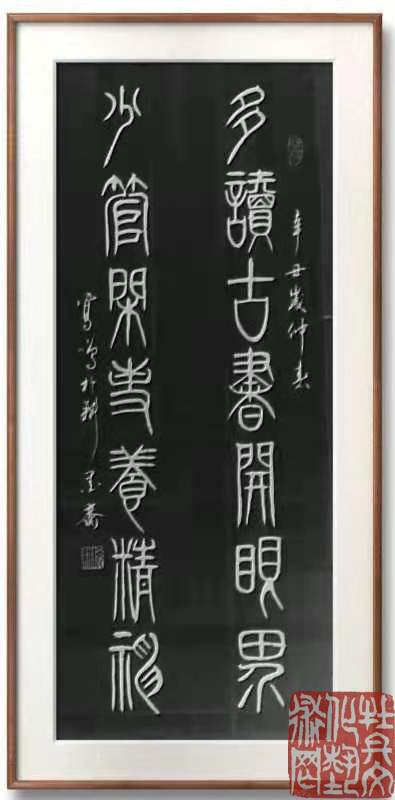 辛丑歲仲春
多讀古書開眼界
少管閑事養精神
於耕墨齋